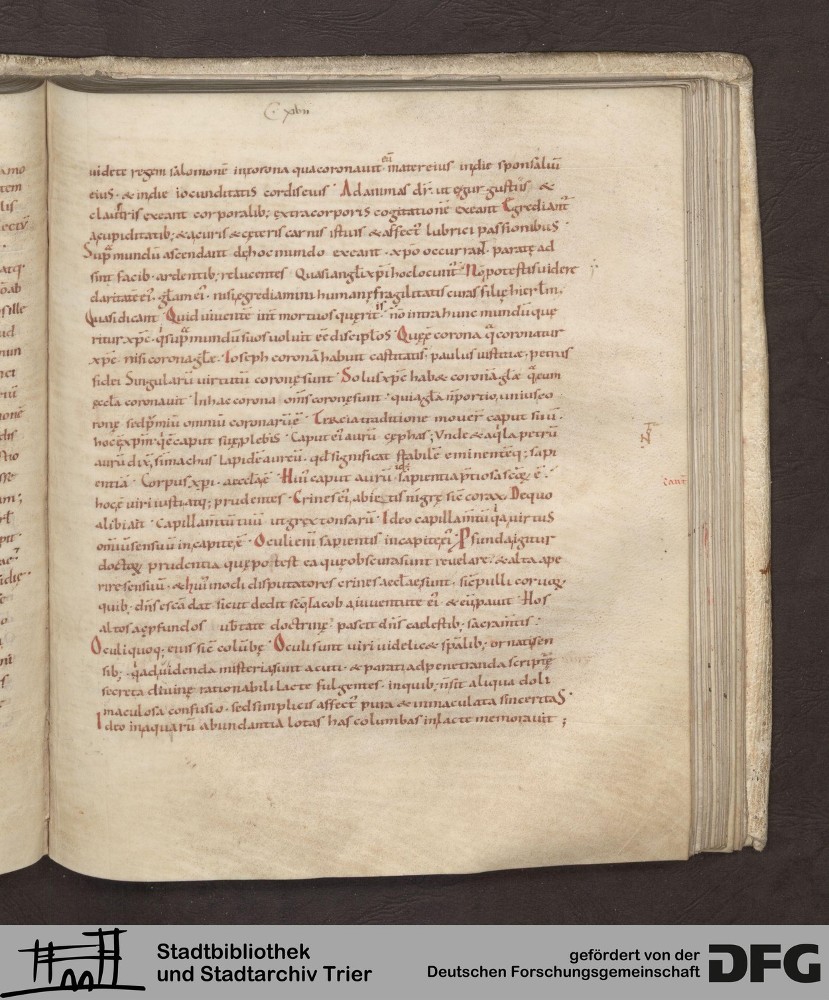 C xvıı
uidete regem salomone in corona qua coronauit eū mater eius in die sponsaliū
eius · & in die iocunditatis cordis eius · Ad animas dr̄ ut egur gustiis &
claustris exeant corporalib; extra corporis cogitationē exeant Egrediant̄
a cupiditatib; & a curis & ceteris carnis istius & affect̄ lubrici passionibus ·
Sup̄ mundū ascendant de hoc mundo exeant · xp̄o occurrant · paratę ad
sint facib · ardentib; relucentes Quasi angli xp̄i hoc locunt̄ Nō potestis uidere
claritatē ei · gl̄am ei · nisi egrediamini humanę fragilitatis curas filię hierl̄m ·
Quasi dicant Quid uiuente int̄ mortuos querit̄is · nō intra hunc mundū quę
ritur xp̄c · q̄ sup̄ mundū suos uoluit eē discipl̄os Quęę corona q̄ coronatur
xp̄c nisi corona gl̄ę · Ioseph coronā habuit castitatis paulus iustitię · petrus
fidei Singularū uirtutū coronę sunt Solus xp̄c hab& coronā gl̄ę q̄ eum
ęccl̄a coronauit In hac corona om̄s coronę sunt quia gl̄a n̄ portio uniuseo
ronę sed p̄miū omniū coronarū ē Tracia traditione mouer̄ caput suū ·
caput
aurū dix̄ simachus lapidē aureū · qd̄ significat stabile eminenteq; sapi
entiā Corpus xp̄i · aeccl̄a ē Hui caput aurū sapientia p̄tiosa scā ē ·
hoc ē uiri iusti atq; prudentes · Crines ei abietis nigrę sic corax Dequo
alibi ait Capillam̄tū tuū ut grex tonsarū Ideo capillam̄tū q̄a uirtus
omniū sensuū in capite ē Oculi enī sapientis in capite ei
doctoę prudentia quę potest ea quę obscura sunt reuelare · & alta ape
rire sensuū · & hui modi disputatores crines aeccl̄ae sunt · sic pulli coruoꝝ
quib; dn̄s escā dat sicut dedit
altos a ꝓfundos ub̄tate doctrinę pascit dn̄s caelestib; sacram̄tis :
Oculi quoq; eius sic colūbę Oculi sunt uiri uidelic& sp̄alib; ornati sen
sib; q̄ ad uidenda misteria sunt acuti · & parati ad penetranda scriptę
secreta diuinę rationabili lacte fulgentes · in quib; n̄ sit aliqua doli
maculosa confusio · sed simplicis affect̄ pura & inmaculata sinceritas ·
Ideo in aquarū abundantia lotas has columbas in lacte memorauit ;
Cant
Stadtbibliothek
und Stadtarchiv Trier
gefördert von der
Deutschen Forschungsgemeinschaft
DFG